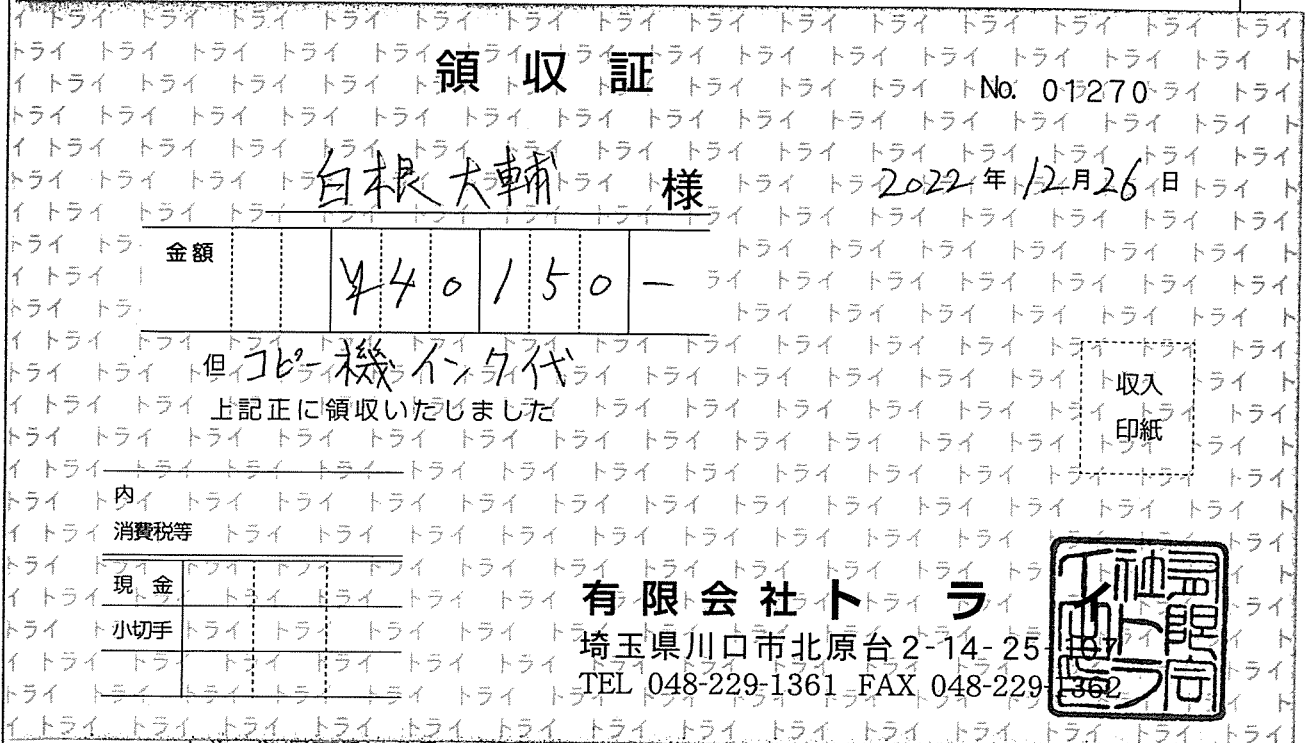 領収証
No. 01270
白根大輔 様
2022年12月26日
金額 ¥40150-
但 コピー機インク代
上記正に領収いたしました
収入
印紙
内
消費税等
現金
小切手
有限会社トライ
埼玉県川口市北原台2-14-25-107
TEL 048-229-1361 FAX 048-229-1362